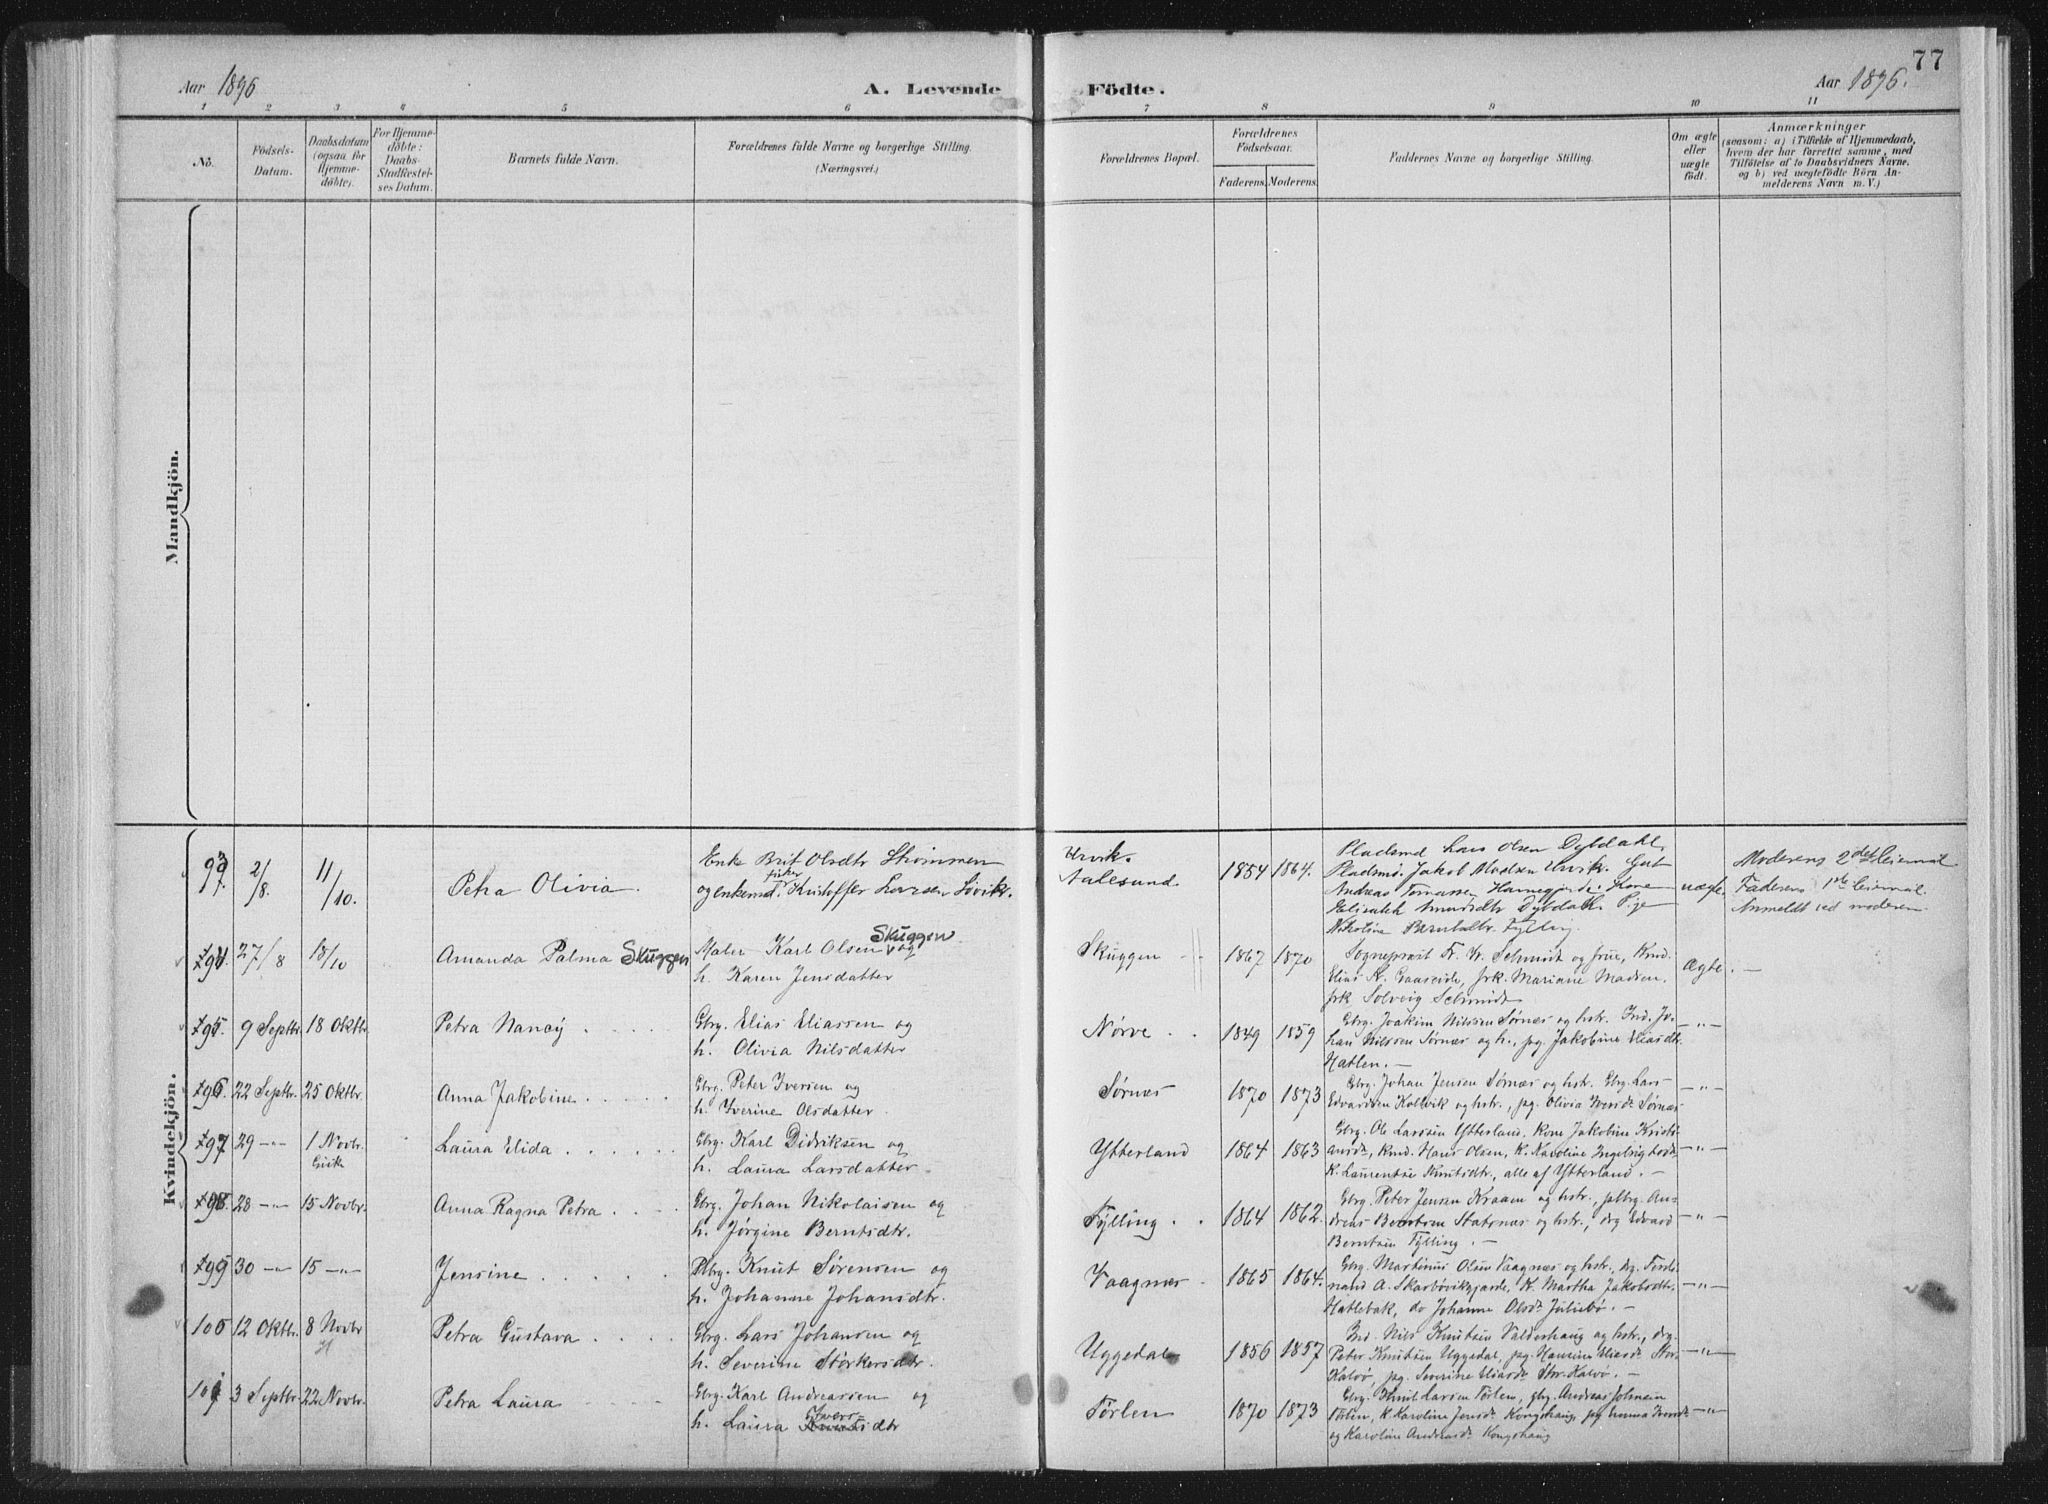 77
Aar 1896
A. Levende
Födte.
Aar 1896.
1 2 3 4 5 6 7 8 9 10 11
No.
Födsels-
Datum.
Daabsdatum
(ogsaa for
Hjemme-
döbte).
For Hjemme-
döbte:
Daabs-
Stadfæstel-
ses Datum.
Barnets fulde Navn.
Forældrenes fulde Navne og borgerlige Stilling.
(Næringsvei.)
Forældrenes Bopæl.
Forældrenes
Födselsaar.
Faderens. Moderens.
Faddernes Navne og borgerlige Stilling.
Om ægte
eller
uægte
födt.
Anmærkninger
(saasom: a) i Tilfælde af Hjemmedaab,
hvem der har forrettet samme, med
Tilföielse af to Daabsvidners Navne.
og b) ved uægtefödte Börn An-
melderens Navn m. V.)
Mandkjön.
Kvindekjön.
93. 2/8. 11/10. Petra Olivia.
Enke Brit Olsdtr Strømmen
fisker
og enkemd. Kristoffer Larsen Løvik.
Urvik.
Aalesund.
1854 1864.
Pladsmd Lars Olsen Dybdahl,
Pladsmd. Jakob Madsen Urvik. Gut
Andreas Tomassen Kone
Elisabeth Dybdahl. Pige
Nikoline Fylling.
uægte
Moderens 2det leiermaal
Faderens 1ste leiermaal.
Anmeldt ved moderen.
94. 27/8 18/10 Amanda Palma Skuggen
Maler Karl Olsen Skuggen og
h. Karen Jensdatter
Skuggen
1867 1870
Sogneprest F. W. Schmidt og frue, Kmd.
Elias K. Gaaseide, frk. Mariane Madsen.
frk Solveig Schmidt
Ægte. —
95. 9 Septbr. 18 Oktbr. Petra Nancÿ
Gbrg. Elias Eliassen og
h. Olivia Nilsdatter
Nørve
1849 1859
Gbrg. Joakim Nilssen Sørnæs og hstr. Ind. Jo-
han Nilssen Sørnæs og h., pg. Jakobine Eliasdtr.
Hatlen. —
— " —
96. 22 Septbr. 25 Oktbr. Anna Jakobine
Gbrg. Peter Iversen og
h. Iverine Olsdatter
Sørnæs
1870 1873
Gbrg. Johan Jensen Sørnæs og hstr. Gbrg. Lars
Edvardsen Kalvik og hstr., pg. Olivia Iversdr. Sørnæs
— " —
97 29 — " — 1 Novbr. Laura Elida
Giske
Gbrg. Karl Didriksen og
h. Laura Larsdatter
Ytterland
1864 1863
Gbrg. Ole Larssen Ytterland, Kone Jakobine Kristi-
ansdr., Kmd. Hans Olsen, K. Karoline
K. Laurentse Knutsdtr., alle af Ytterland. —
— " —
98. 28 — " — 15 Novbr. Anna Ragna Petra
Gbrg. Johan Nikolaisen og
h. Jørgine Berntsdtr.
Fÿlling
1864 1862.
Gbrg. Peter Jensen Kraam og hstr., An-
dreas Berntsen Statsnæs og hstr., drg Edvard
Berntsen Fÿlling. —
— " —
99 30 — " — 15 — " — Jensine
Gbrg. Knut Sørensen og
h. Johanne Johansdtr.
Vaagnes
1865 1864.
Gbrg. Martinus Olsen Vaagnæs og hstr., drg. Ferdi-
nand A. Skarbøvikgjærde, K. Martha Jakobsdtr.
Hatlebak, do Johanne Olsdr. Juliebø. —
— " —
100 12 Oktbr. 8 Novbr Petra Gustava
H
Gbrg. Lars Johansen og
h. Severine Størkersdtr.
Uggedal
1856 1857
Ind. Nils Knutsen Valderhaug og hstr., drg.
Peter Knutsen Uggedal, pg. Hansine Eliasdr Stor-
Kalvø, pg. Severine Eliasdr. Str. Kalvø. —
— " —
101 3 Septbr. 22 Novbr. Petra Laura
Gbrg. Karl Andreassen og
Ivers
h. Laura dtr
Tørlen
1870 1873
Gbrg. Knut Larsen Tørlen, gbrg. Andreas Johnsen
Tørlen, K Karoline Jensdr. Kongshaug, pg Emma Iversdr.
og Karoline Andreasdr. Kongshaug
— " —